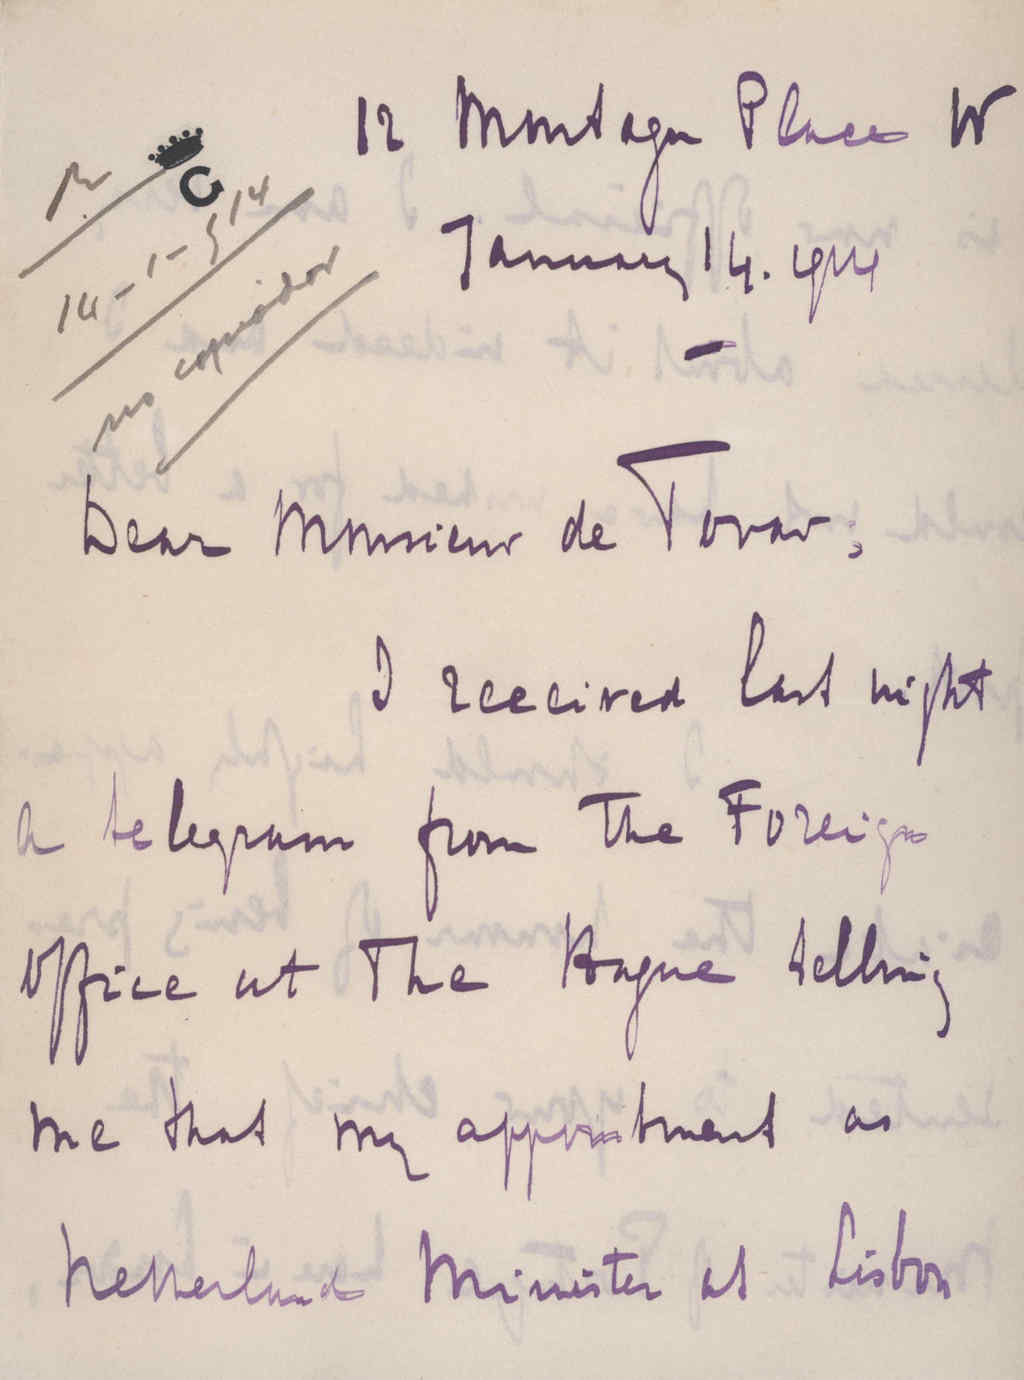 12 Montagu Place W
January 14. 1914
R
C
14-1-914
no copiador
Dear Monsieur de Tovar;
I received last night
a telegram from the Foreign
Office at The Hague telling
me that my appointment as
Netherland Minister at Lisbon